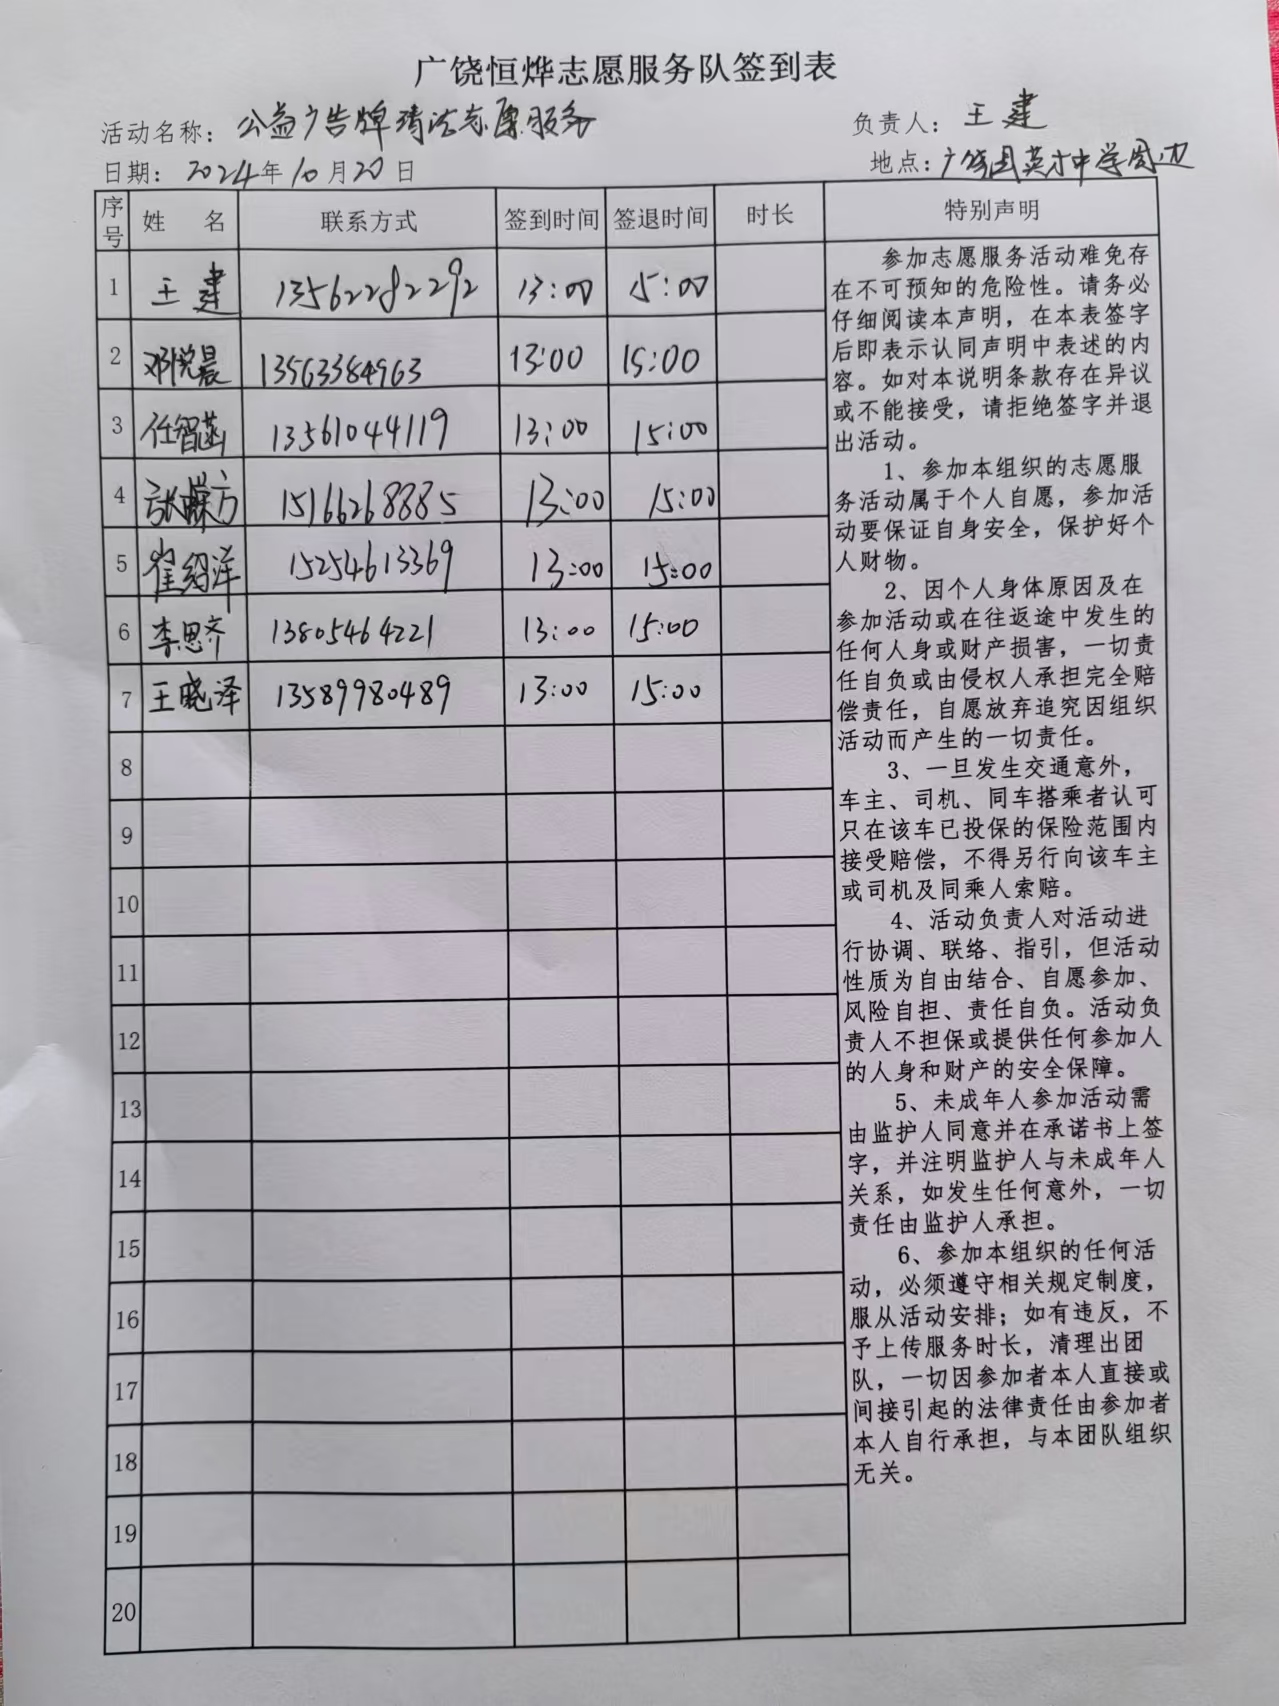 广饶恒烨志愿服务队签到表
活动名称：公益广告牌清洁志愿服务 负责人：王建
日期：2024年10月20日 地点：广饶县英才中学周边
序号 姓 名 联系方式 签到时间 签退时间 时长 特别声明
1 王建 13562282292 13:00 15:00
2 邓悦晨 13563384963 13:00 15:00
3 任智菡 13561044119 13:00 15:00
4 张 方 15166268885 13:00 15:00
5 崔绍洋 15254613369 13:00 15:00
6 李思齐 13805464221 13:00 15:00
7 王晓泽 13589980489 13:00 15:00
8
9
10
11
12
13
14
15
16
17
18
19
20
参加志愿服务活动难免存
在不可预知的危险性。请务必
仔细阅读本声明，在本表签字
后即表示认同声明中表述的内
容。如对本说明条款存在异议
或不能接受，请拒绝签字并退
出活动。
1、参加本组织的志愿服
务活动属于个人自愿，参加活
动要保证自身安全，保护好个
人财物。
2、因个人身体原因及在
参加活动或在往返途中发生的
任何人身或财产损害，一切责
任自负或由侵权人承担完全赔
偿责任，自愿放弃追究因组织
活动而产生的一切责任。
3、一旦发生交通意外，
车主、司机、同车搭乘者认可
只在该车已投保的保险范围内
接受赔偿，不得另行向该车主
或司机及同乘人索赔。
4、活动负责人对活动进
行协调、联络、指引，但活动
性质为自由结合、自愿参加、
风险自担、责任自负。活动负
责人不担保或提供任何参加人
的人身和财产的安全保障。
5、未成年人参加活动需
由监护人同意并在承诺书上签
字，并注明监护人与未成年人
关系，如发生任何意外，一切
责任由监护人承担。
6、参加本组织的任何活
动，必须遵守相关规定制度，
服从活动安排；如有违反，不
予上传服务时长，清理出团
队，一切因参加者本人直接或
间接引起的法律责任由参加者
本人自行承担，与本团队组织
无关。